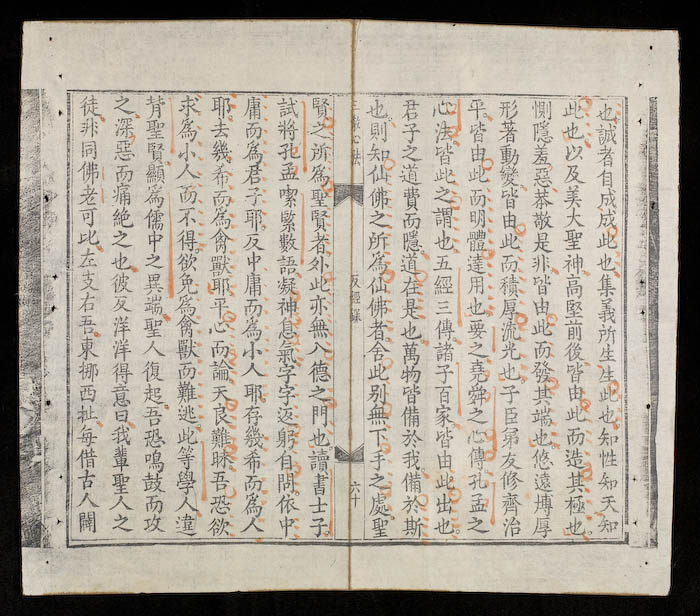 也誠者自成成此也集義所生生此也知性知天知
此也以及美大聖神高堅前後皆由此而造其極也
惻隱羞惡恭敬是非皆由此而發其端也悠遠博厚
形著動變皆由此而積厚流光也子臣弟友修齊治
平皆由此而明體達用也要之堯舜之心傳孔孟之
心法皆此之謂也五經三傳諸子百家皆由此出也
君子之道費而隱道在是也萬物皆備於我備於斯
也則知仙佛之所為仙佛者舍此別無下手之處聖
心法
反經錄
六十
賢之所為聖賢者外此亦無入德之門也讀書士子
試將孔孟喫緊數語凝神息氣字字返躬自問依中
庸而為君子耶反中庸而為小人耶存幾希而為人
耶去幾希而為禽獸耶平心而論天良難昧吾恐欲
求為小人而不得欲免為禽獸而難逃此等學人違
背聖賢顯為儒中之異端聖人復起吾恐鳴鼓而攻
之深惡而痛絕之也彼反洋洋得意曰我輩聖人之
徒非同佛老可比左支右吾東挪西扯每借古人闢